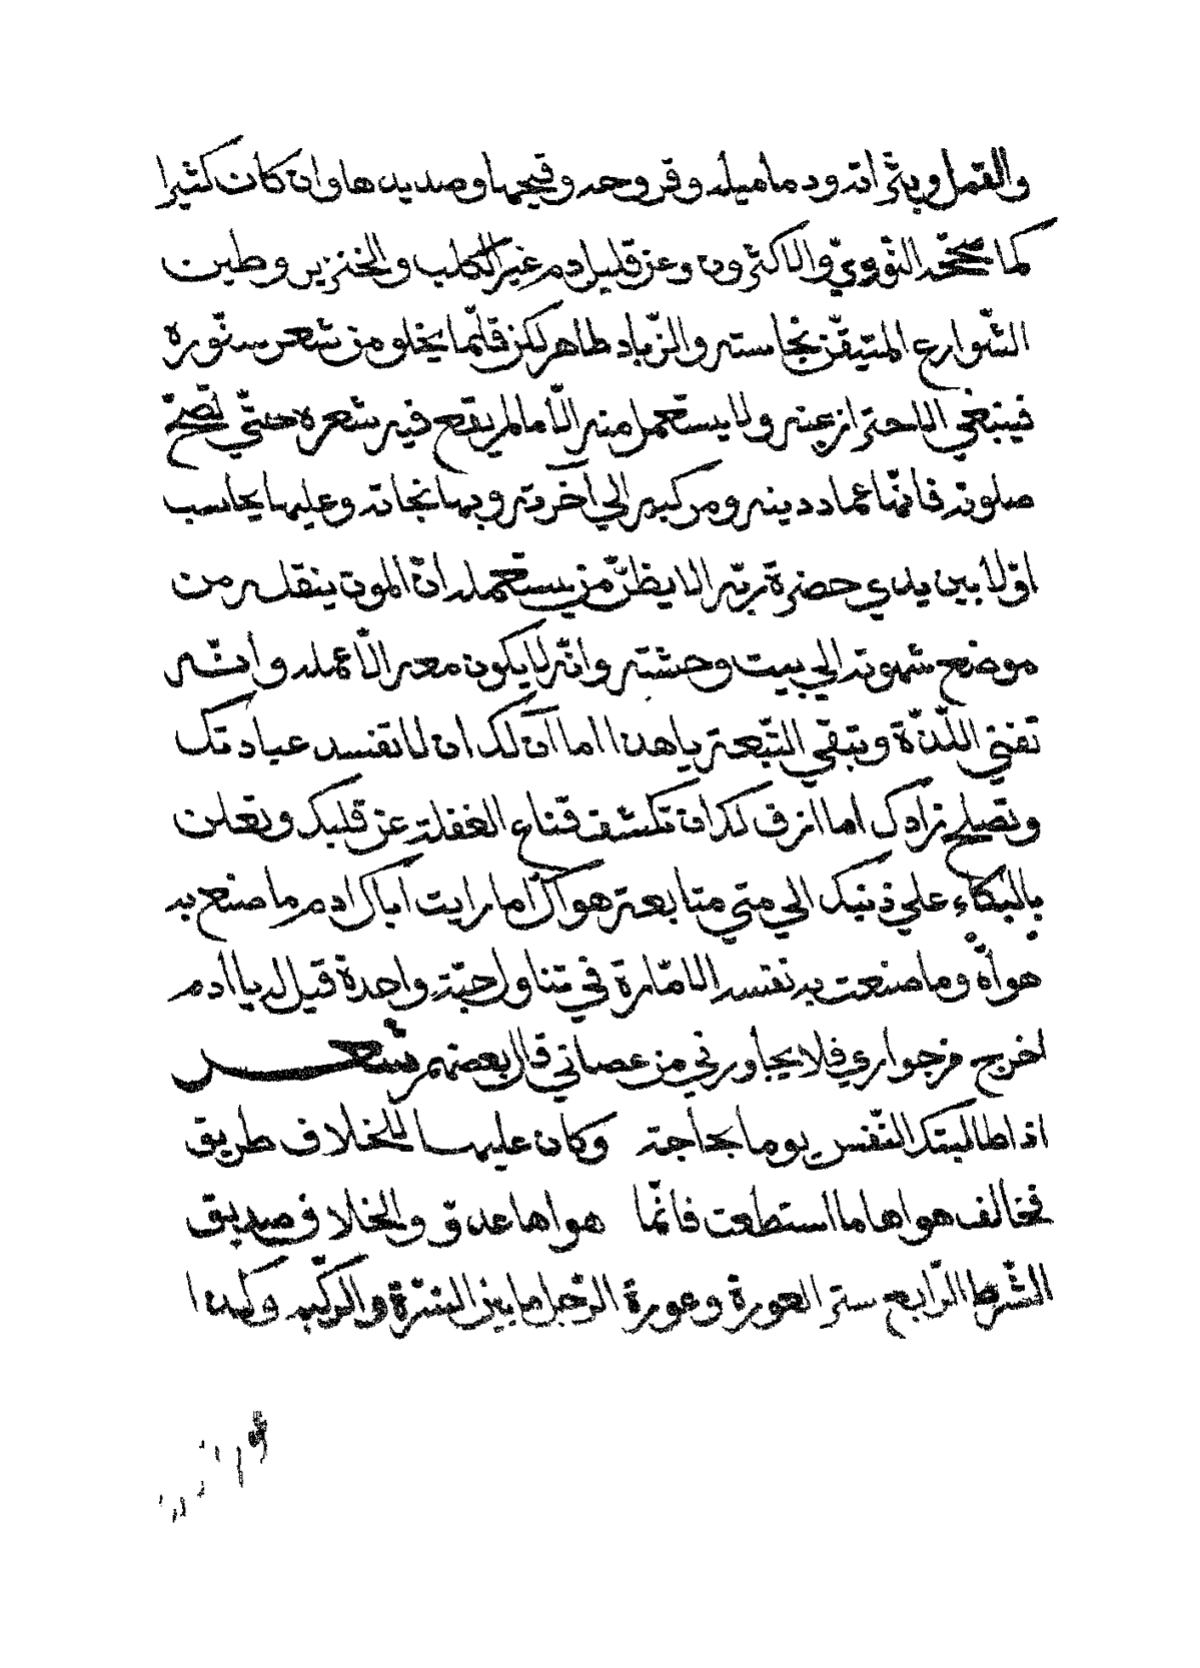 والقمل وبثراته ودماميله وقروحه وقيحها وصديدها وان كان كثيرا
كما صحّحه النّوويّ والاكثرون وعن قليل دم غير الكلب والخنزير وطين
الشّوارع المتيقّن نجاسته والزّباد طاهر لكن قلّما يخلو من شعر سنّوره
فينبغي الاحتراز عنه ولا يستعمل منه الّا ما لم يقع فيه شعره حتّي تصحّ
صلوته فانّها عماد دينه ومركبه الي آخرته وبها نجاته وعليها يحاسب
اوّلا بين يدي حضرة ربّه الا يظنّ من يستعمله انّ الموت ينقله من
موضع شهوته الي بيت وحشته وانّه لا يكون معه الّا عمله وانّه
تفني اللّذّة وتبقي التّبعة يا هذا اما آن لك ان لا تفسد عبادتك
وتصلح زادك اما ازف لك ان تكشف قناع الغفلة عن قلبك وتعلن
بالبكاء علي ذنبك الي متي متابعة هواك اما رايت اباك ادم ما صنع به
هواه وما صنعت به نفسه الامّارة في تناول حبّة واحدة قيل له يا ادم
اخرج من جواري فلا يجاورني من عصاني قال بعضهم شعر
اذا طالبتك النّفس يوما بحاجة وكان عليها للخلاف طريق
فخالف هواها ما استطعت فانّما هواها عدوّ والخلاف صديق
الشّرط الرّابع ستر العورة وعورة الرّجل ما بين السّرّة والرّكبه وكذا